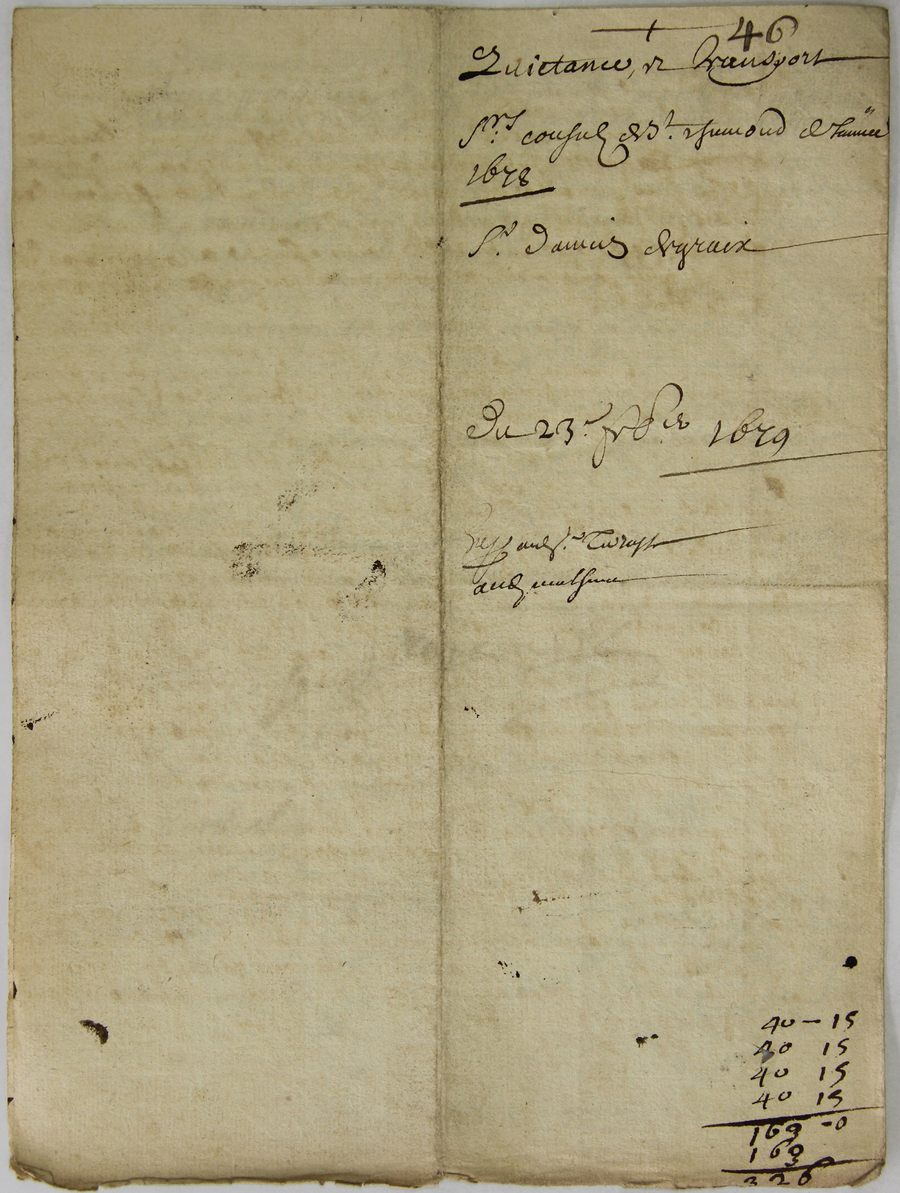 46
Quictance, et Transport
Srs consulz de St. chamond de Lannee
1678
Sr. Damien degraix
Du 23e feber 1679
40 - 15
40 15
40 15
40 15
163 - 0
163
326